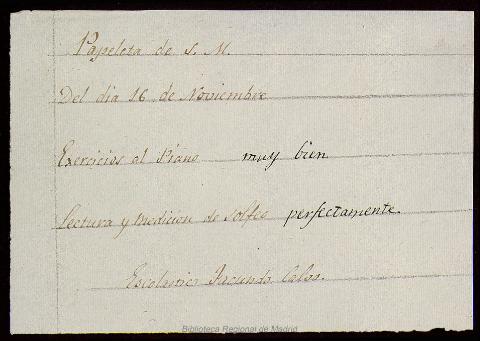 Papeleta de S. M.
Del dia 16 de Noviembre
Exercicios al Piano muy bien
Lectura y Medicion de Solfeo perfectamente.
Escolastico Facundo Calvo.
Biblioteca Regional de Madrid